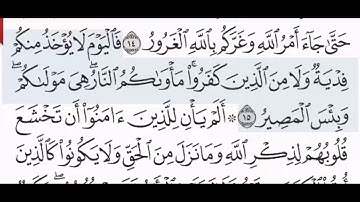 حَتَّىٰ جَآءَ أَمۡرُ ٱللَّهِ وَغَرَّكُم بِٱللَّهِ ٱلۡغَرُورُ ١٤ فَٱلۡيَوۡمَ لَا يُؤۡخَذُ مِنكُمۡ
فِدۡيَةٞ وَلَا مِنَ ٱلَّذِينَ كَفَرُواْۚ مَأۡوَىٰكُمُ ٱلنَّارُۖ هِيَ مَوۡلَىٰكُمۡۖ
وَبِئۡسَ ٱلۡمَصِيرُ ١٥ ۞ أَلَمۡ يَأۡنِ لِلَّذِينَ ءَامَنُوٓاْ أَن تَخۡشَعَ
قُلُوبُهُمۡ لِذِكۡرِ ٱللَّهِ وَمَا نَزَلَ مِنَ ٱلۡحَقِّ وَلَا يَكُونُواْ كَٱلَّذِينَ